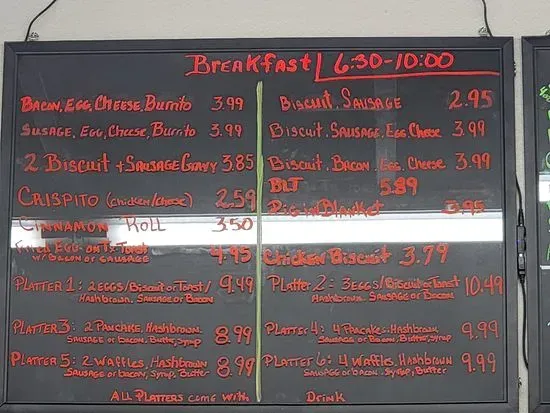 Breakfast 6:30-10:00
Bacon, Egg, Cheese, Burrito 3.99
Susage, Egg, Cheese, Burrito 3.99
2 Biscuit + Sausage Gravy 3.85
Crispito (chicken/cheese) 2.59
Cinnamon Roll 3.50
Fried Egg on Tx Toast 4.95
w/ Bacon or Sausage
Platter 1: 2 Eggs/Biscuit or Toast/ 9.49
Hashbrown, Sausage or Bacon
Platter 3: 2 Pancake, Hashbrown 8.99
Sausage or Bacon, Butter, Syrup
Platter 5: 2 Waffles, Hashbrown 8.99
Sausage or bacon, Syrup, Butter
Biscuit, Sausage 2.95
Biscuit, Sausage, Egg, Cheese 3.99
Biscuit, Bacon, Egg, Cheese 3.99
BLT 5.89
Pig in Blanket 3.95
Chicken Biscuit 3.79
Platter 2: 3 Eggs/Biscuit or Toast 10.49
Hashbrown, Sausage or Bacon
Platter 4: 4 Pancakes, Hashbrown 9.99
Sausage or Bacon, Butter, Syrup
Platter 6: 4 Waffles, Hashbrown 9.99
Sausage or bacon, Syrup, Butter
All Platters come with Drink